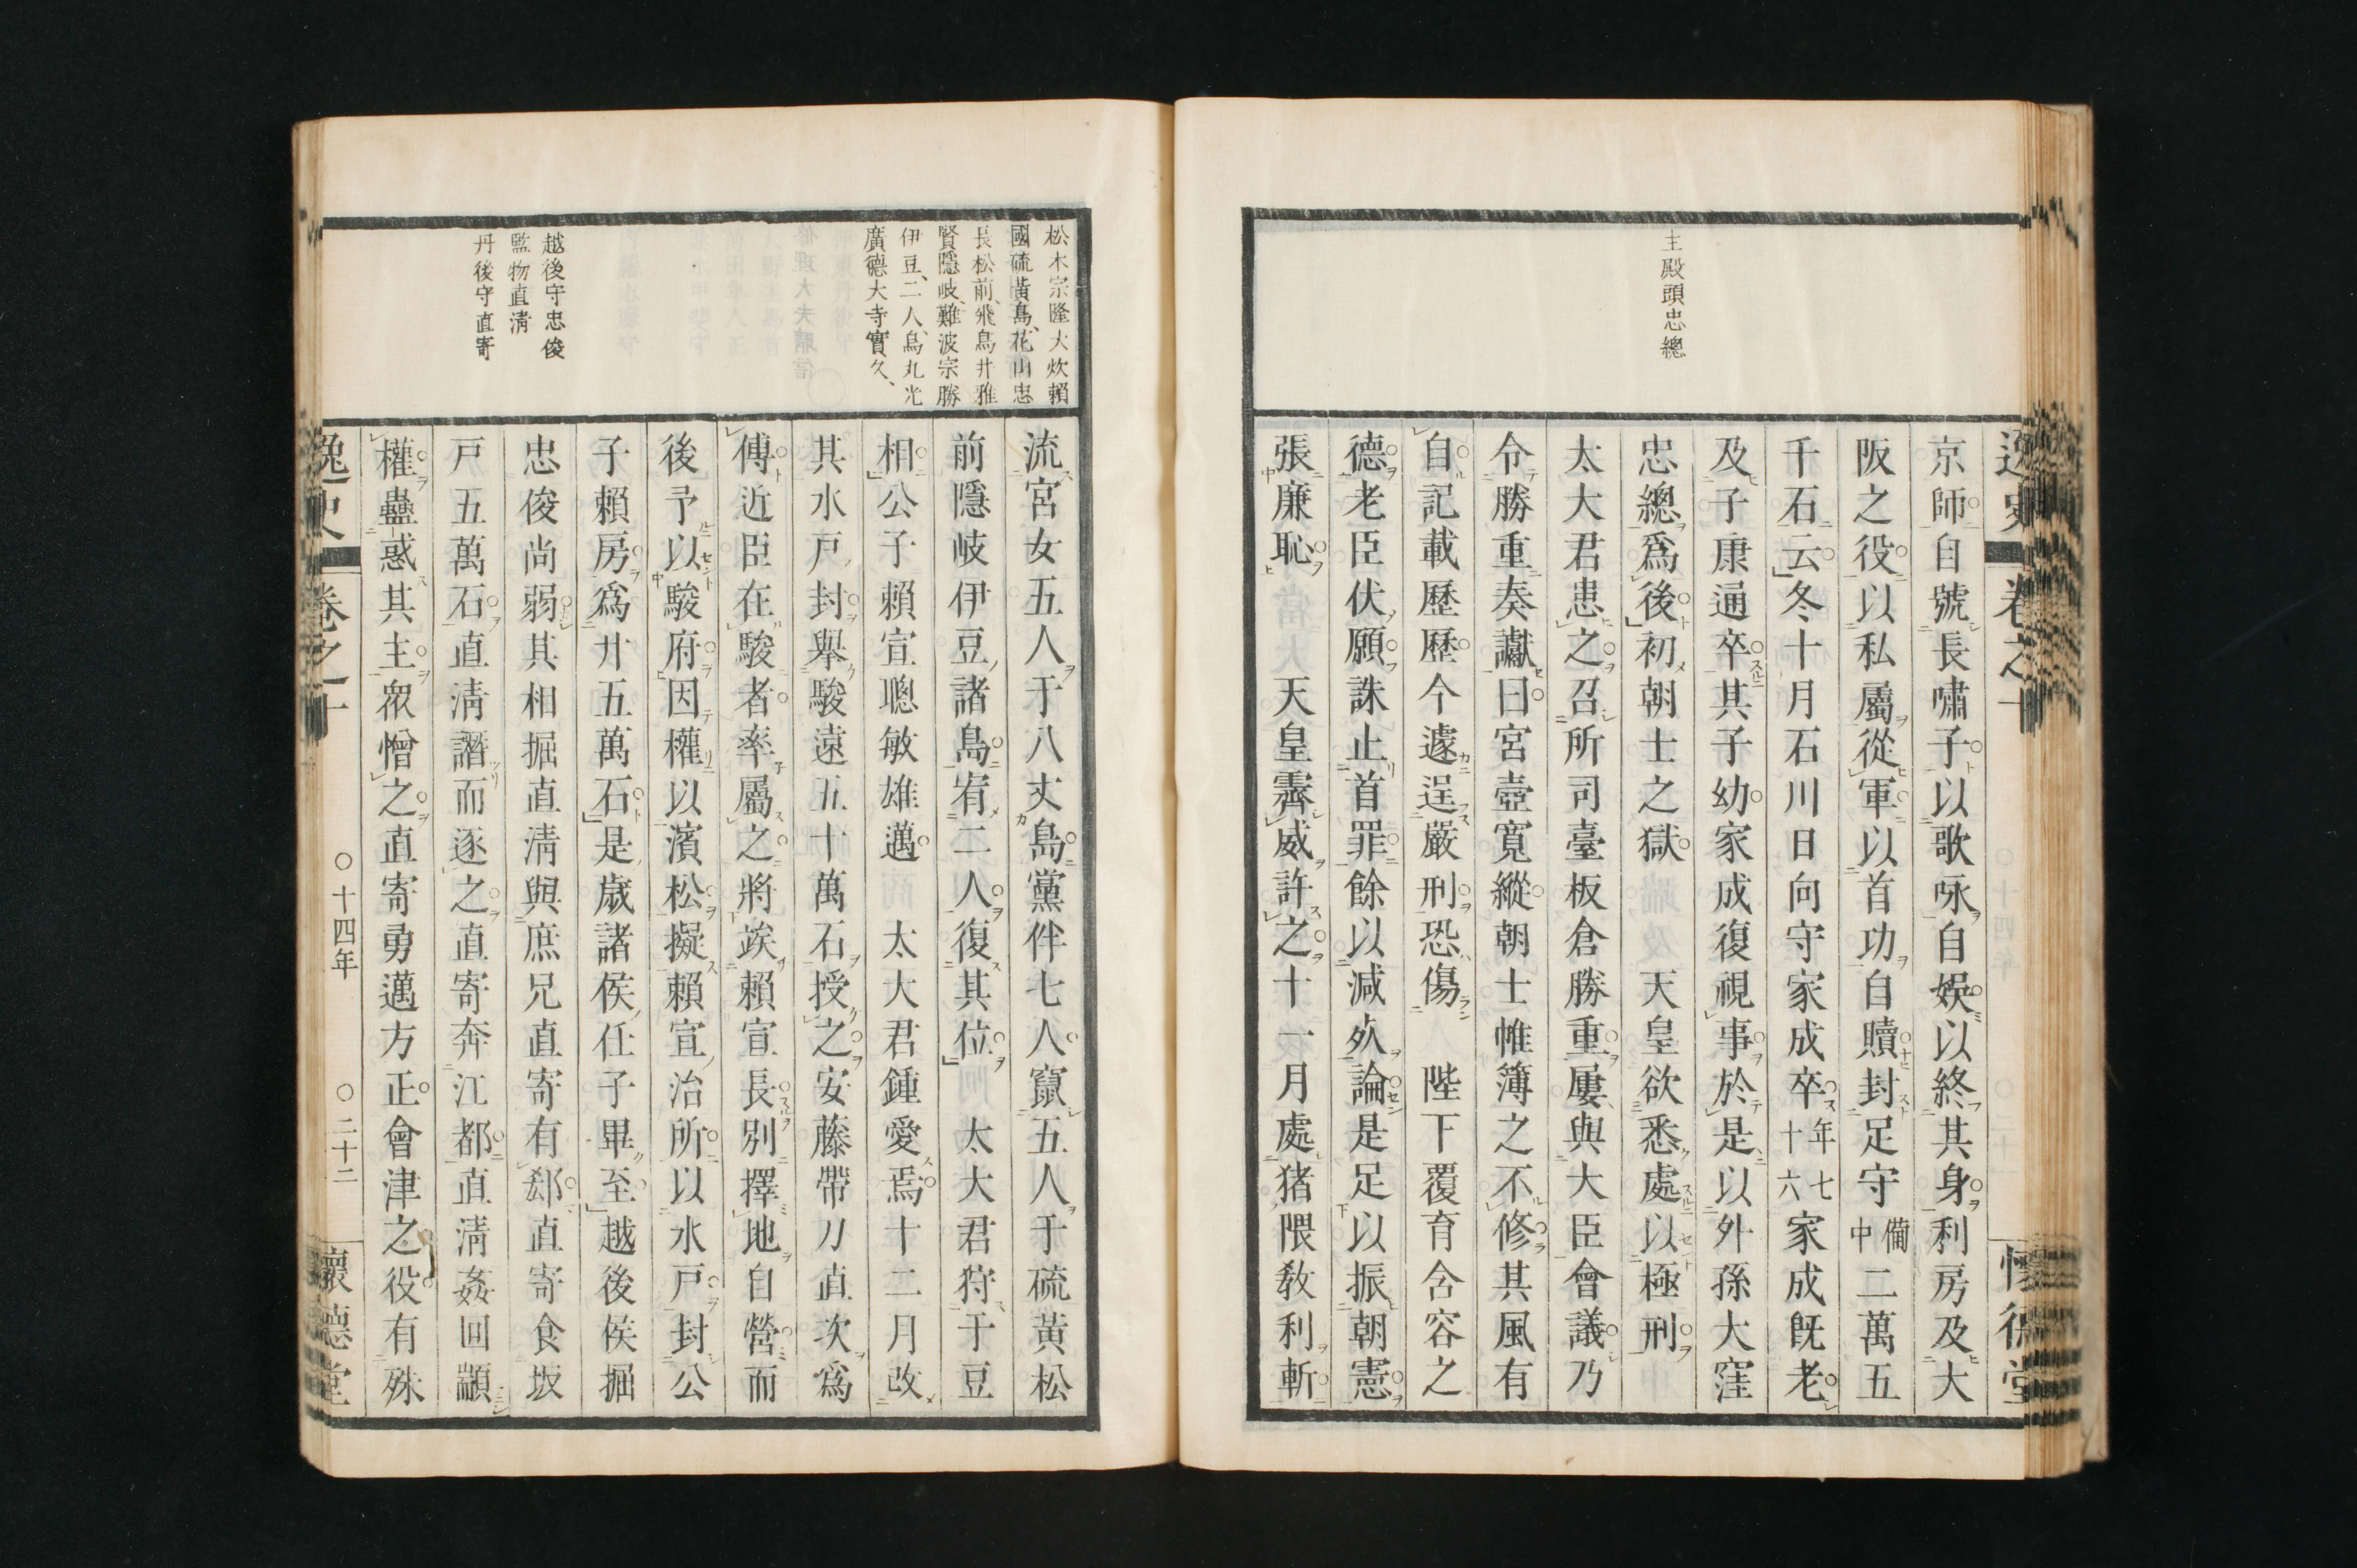 主殿頭忠總
京師自號長嘯子以歌咏自娛以終其身利房及大
阪之役以私屬從軍以首功自贖封足守備中二萬五
千石云冬十月石川日向守家成卒年七十六家成旣老
及子康通卒其子幼家成復視事於是以外孫大窪
忠總爲後初朝士之獄 天皇欲悉處以極刑
太大君患之召所司臺板倉勝重屢與大臣會議乃
令勝重奏讞曰宮壺寬縱朝士帷簿之不修其風有
自記載歷歷今遽逞嚴刑恐傷 陛下覆育含容之
德老臣伏願誅止首罪餘以減死論是足以振朝憲
張廉恥 天皇霽威許之十一月處猪隈敎利斬
松木宗隆大炊賴
國硫黃島、花山忠
長松前、飛鳥井雅
賢隱岐、難波宗勝
伊豆、二人、烏丸光
廣德大寺實久、
流宮女五人于八丈島黨伴七人竄五人于硫黃松
前隱岐伊豆諸島宥二人復其位 太大君狩于豆
相公子賴宣聰敏雄邁 太大君鍾愛焉十二月改
其水戸封舉駿遠五十萬石授之安藤帶刀直次爲
傅近臣在駿者率屬之將竢賴宣長別擇地自營而
後予以駿府因權以濱松擬賴宣治所以水戸封公
子賴房爲廾五萬石是歲諸侯任子畢至越後侯堀
忠俊尚弱其相堀直淸與庶兄直寄有郄直寄食坂
戸五萬石直淸譖而逐之直寄奔江都直淸姦回顓
權蠱惑其主衆憎之直寄勇邁方正會津之役有殊
越後守忠俊
監物直淸
丹後守直寄
逸史 卷之十 ○十四年 ○二十二 懷德堂